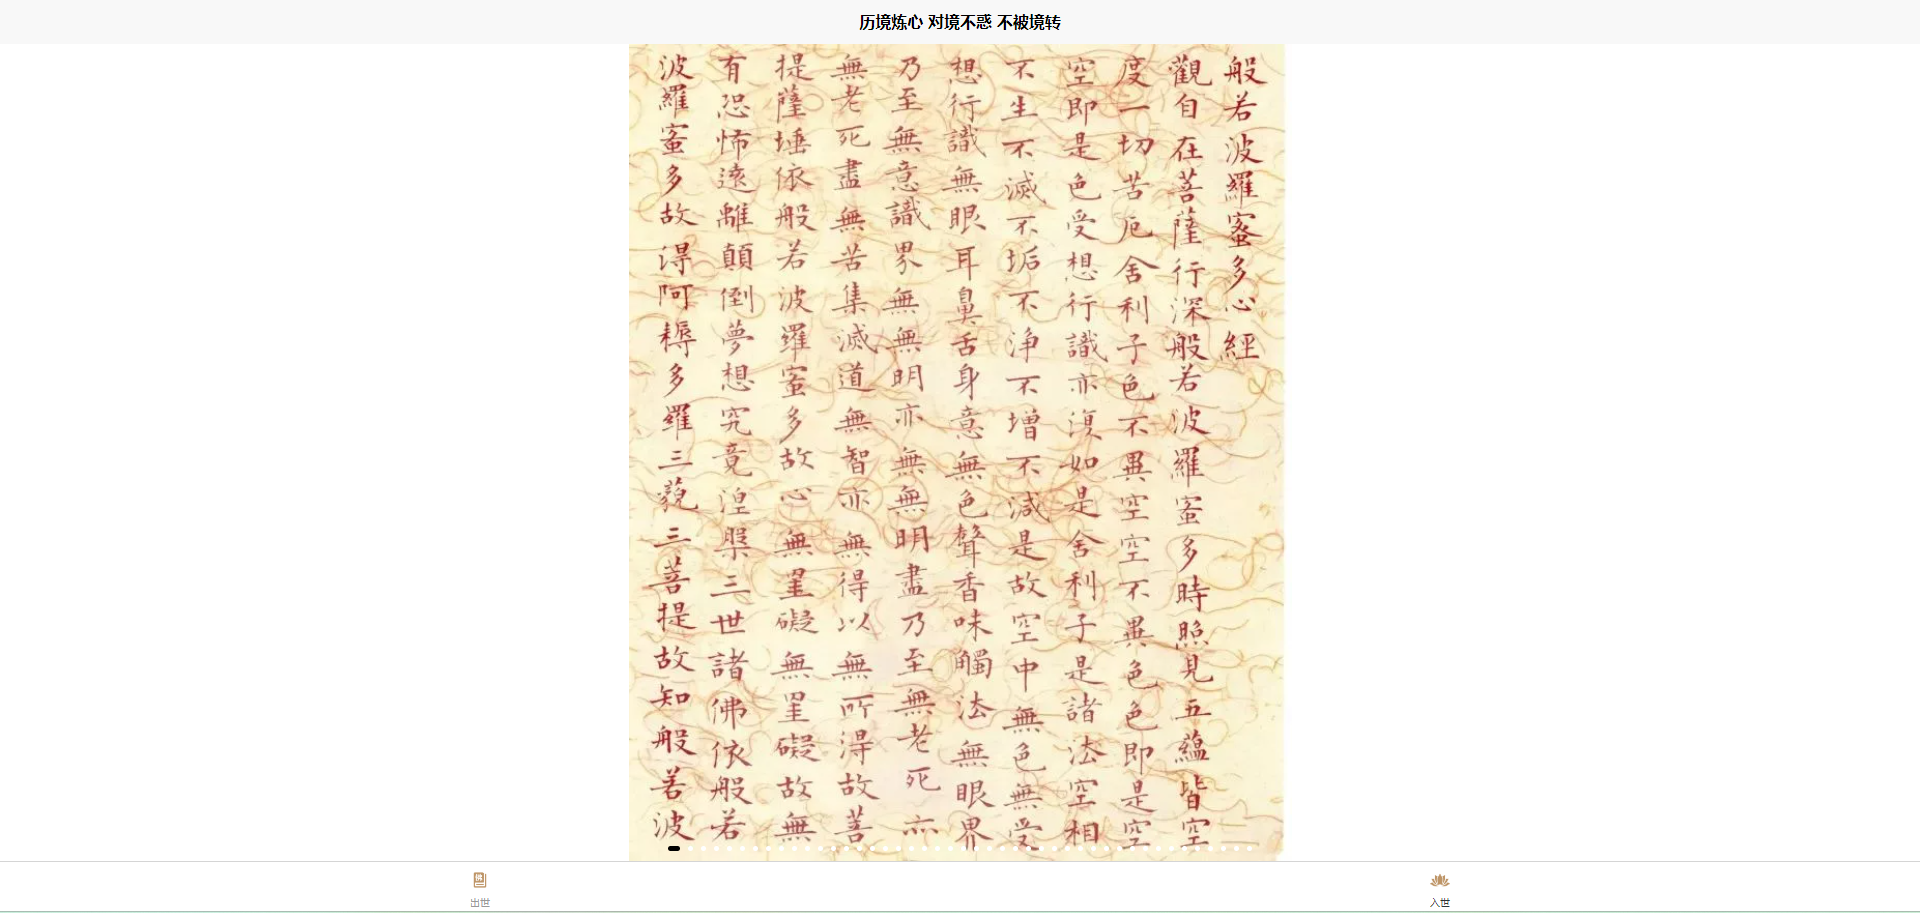 历境炼心 对境不惑 不被境转
般若波羅蜜多心經
觀自在菩薩行深般若波羅蜜多時照見五蘊皆空
度一切苦厄舍利子色不異空空不異色色即是空
空即是色受想行識亦復如是舍利子是諸法空相
不生不滅不垢不淨不增不減是故空中無色無受
想行識無眼耳鼻舌身意無色聲香味觸法無眼界
乃至無意識界無無明亦無無明盡乃至無老死亦
無老死盡無苦集滅道無智亦無得以無所得故菩
提薩埵依般若波羅蜜多故心無罣礙無罣礙故無
有恐怖遠離顛倒夢想究竟涅槃三世諸佛依般若
波羅蜜多故得阿耨多羅三藐三菩提故知般若波
出世
入世